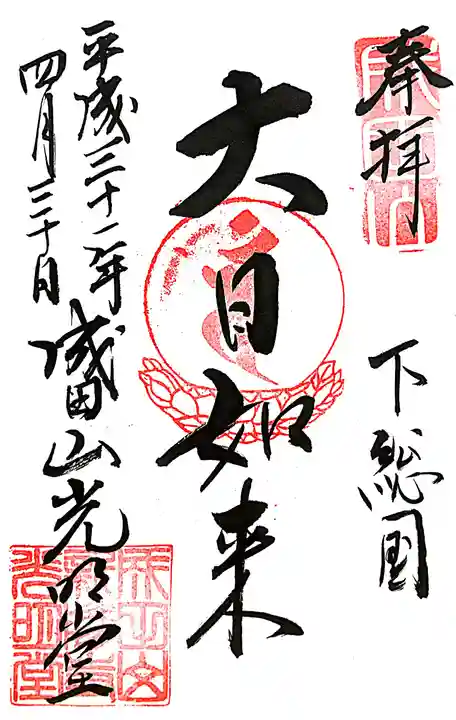 奉拝
下総国
大日如来
平成三十一年
四月三十日
成田山光明堂
成田山
光明堂